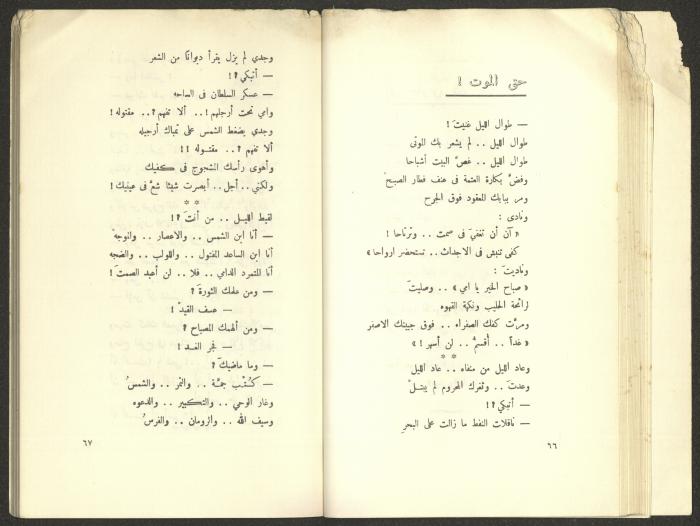 حتى الموت !
— طوال الليل غنيتَ !
طوال الليل .. لم يشعر بك الموتى
طوال الليل .. غصَّ البيت أشباحا
وفضَّ بكارة العتمة في عنف قطار الصبحْ
ومر ببابك المعقود فوق الجرح
ونادى :
« آن أن تغفيَ في صمت .. وترتاحا !
كفى تنبش في الاجداث .. تستحضر ارواحا »
وناديتَ :
« صباح الخير يا امي » .. وصليتَ
لرائحة الحليب ونكهة القهوه
ومرَّت كفك الصفراء .. فوق جبينك الاصفر
« غداً .. أقسمُ .. لن أسهر ! »
* *
وعاد الليل من منفاه .. عاد الليل
وعدتَ .. وثغرك المحروم لم يبتلْ
— أتبكي ؟!
— ناقلات النفط ما زالت على البحرِ
٦٦
وجدي لم يزل يقرأ ديوانا من الشعر
— أتبكي ؟!
— عسكر السلطان في الساحه
وامي تحت أرجلهم !.. ألا تفهم ؟.. مقتوله !
وجدي يضغط الشمس على تنباك أرجيله
ألا تفهم ؟.. مقتوله !!
وأهوى رأسك المشجوج في كفيك
ولكني.. أجل.. أبصرت شيئا شعَّ في عينيك !
* *
لقيط الليل .. من أنتَ ؟!
— أنا ابن الشمس .. والاعصار .. والموجهْ
أنا ابن الساعد المفتول .. واللولب .. والضجه
أنا للتمرد الدامي .. فلا .. لن أعبد الصمتَ !
— ومن علمك الثورةَ ؟
— عسف القيدْ !
— ومن ألهمك المصباح ؟
— فجر الغد !
— وما ماضيكَ ؟
— كُتْب جمَّة .. والتمر .. والشمسُ
وغار الوحي .. والتكبير .. والدعوه
وسيف الله .. والرومان .. والفرسُ
٦٧